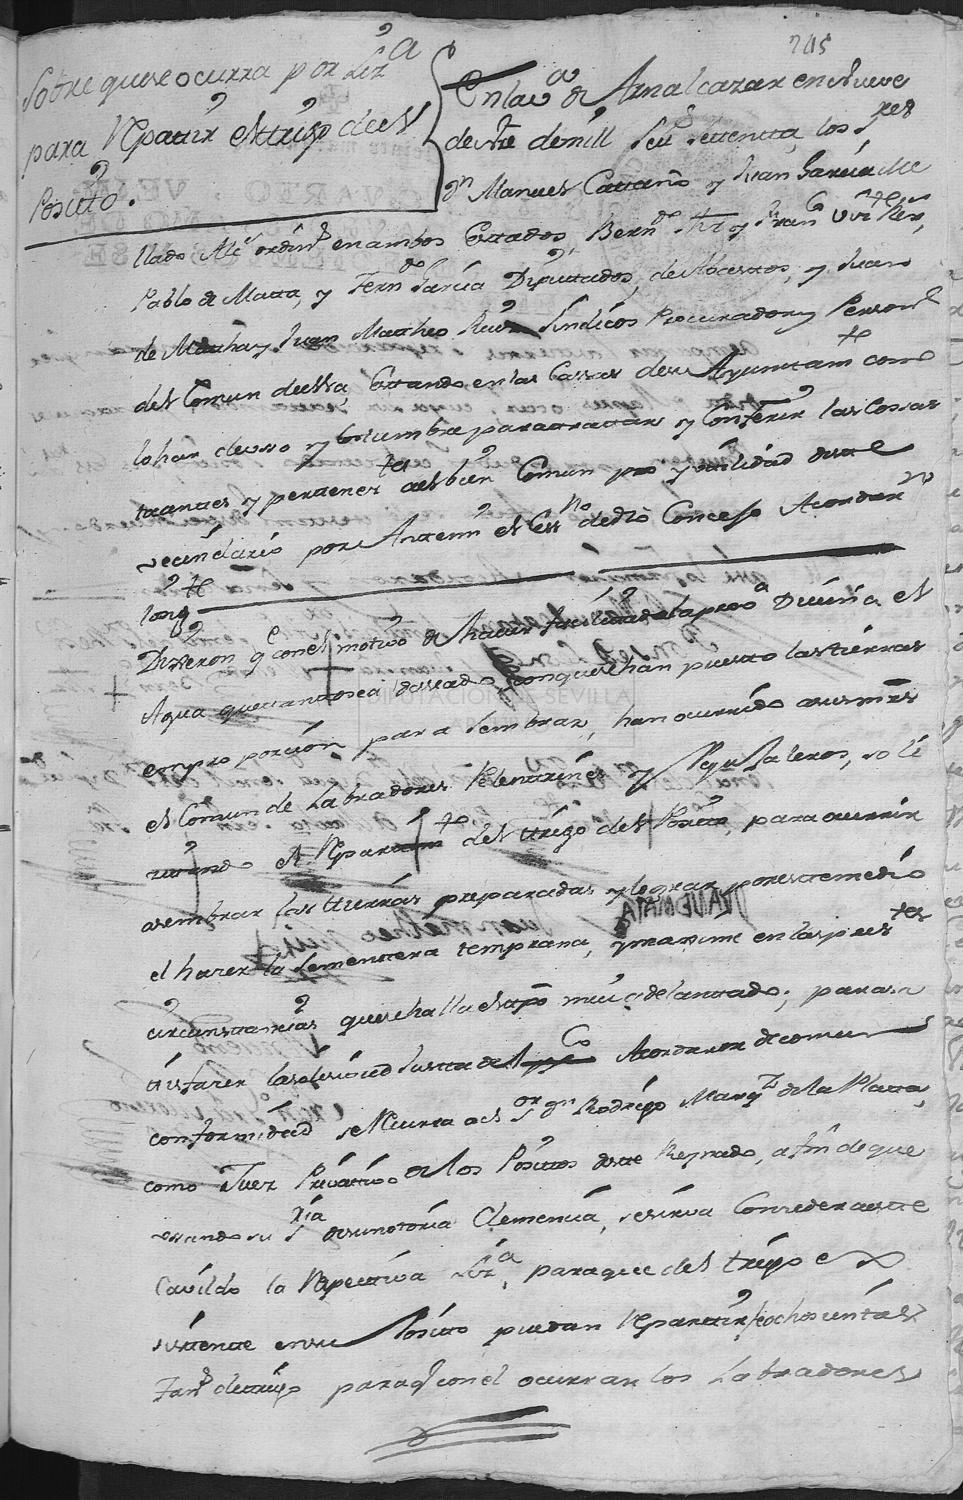 245
Sobre qu se ocurra por Liz.ª
para Repartir el trigo de el
Posito.
En la v.ª de Aznalcazar en nueve
de de mill Set.s settentta, los S.res
D.n Manuel Cattaño y Juan Garcia Me
llado Alc.s ordin.s en ambos Estados, Bern.do y Fran.co
Pablo de Matta, y Fern.do Garcia Diputtados, de Abasttos, y Juan
de y Juan Mattheo Ruiz Sindicos Procurador y Person.o
del Comun de ella, Estando en las Casas de su Ayuntam.to como
lo han de uso y costumbre para trattar y Conferir las Cosas
tocantes y pertenec.tes al bien Comun pro y utilidad deste
vecindario por Antemi el Ess.no de dho Concejo Acordar.on
lo sig.te
Dixeron q.e con el motivo de haver la prov.a Divina el
Agua que tanto sea deseado con que se han puesto las tierras
en proporcion para sembrar, han ocurrido a sus m.rs
el Comun de Labradores Pelentrines y Pegujaleros, soli
citando el Repartim.to del trigo del Posito, para ocurrir
a sembrar las tierras preparadas y lograr por este medio
el hazer la sementera temprana, y maxime en las pres.tes
circunstancias que se halla el tpo mui adelantado; para sa
tisfazer la solicitud Justta de Acordaron de comun
conformidad se Ocurra a el S.or D.n Rodrigo Marq.z de la Platta,
como Juez Privattivo de los Positos deste Reynado, a fin de que
usando su S.ria de su notoria Clemencia, se sirva Conceder a este
Cavildo la Respectiva Liz.ª, para que del trigo e
sistente en su Posito puedan Repartir ochocientas
Fan.s de trigo para q.e con el ocurran los Labradores
DIPUTACION DE SEVILLA